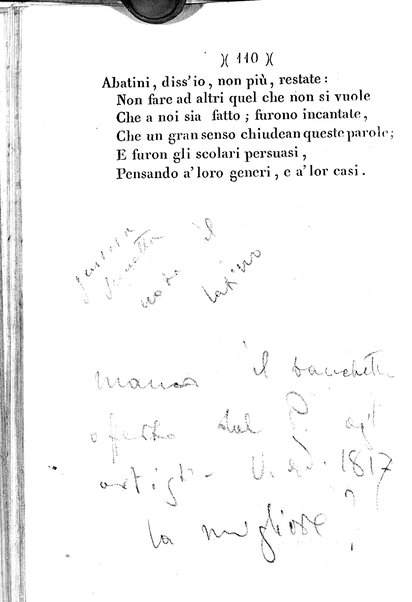 )( 110 )(
Abatini, diss'io, non più, restate:
Non fare ad altri quel che non si vuole
Che a noi sia fatto; furono incantate,
Che un gran senso chiudean queste parole;
E furon gli scolari persuasi,
Pensando a' loro generi, e a' lor casi.
il
manca il banchetto
offerto dal P. agli
artisti - V. ed. 1817
la migliore?